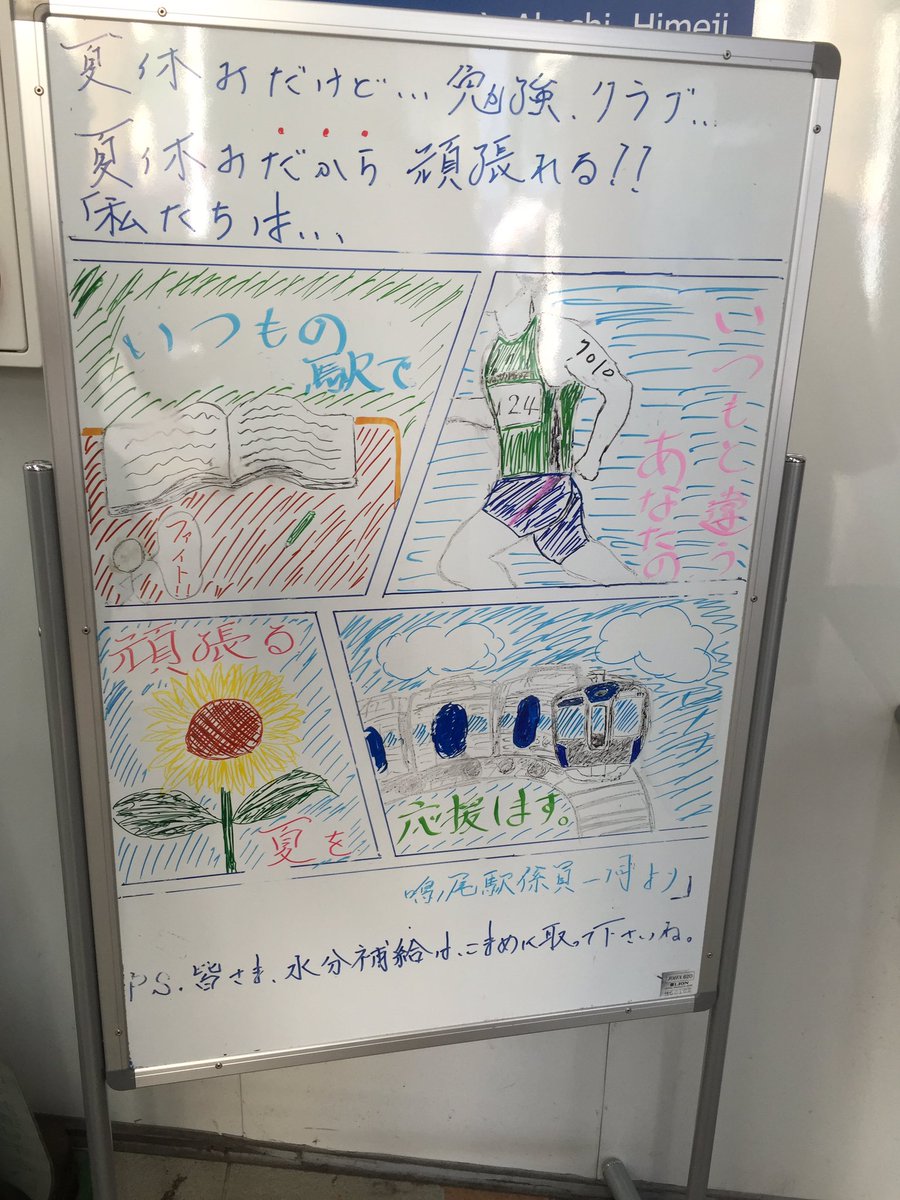 Akashi, Himeji
夏休みだけど…勉強、クラブ…
夏休みだから頑張れる??
「私たちは…
いつもの
駅で
ファイト!!
いつもと違う
あなたの
7010
24
頑張る
夏を
応援します。
鳴尾駅係員一同より」
P.S. 皆さま、水分補給は、こまめに取って下さいね。
LION